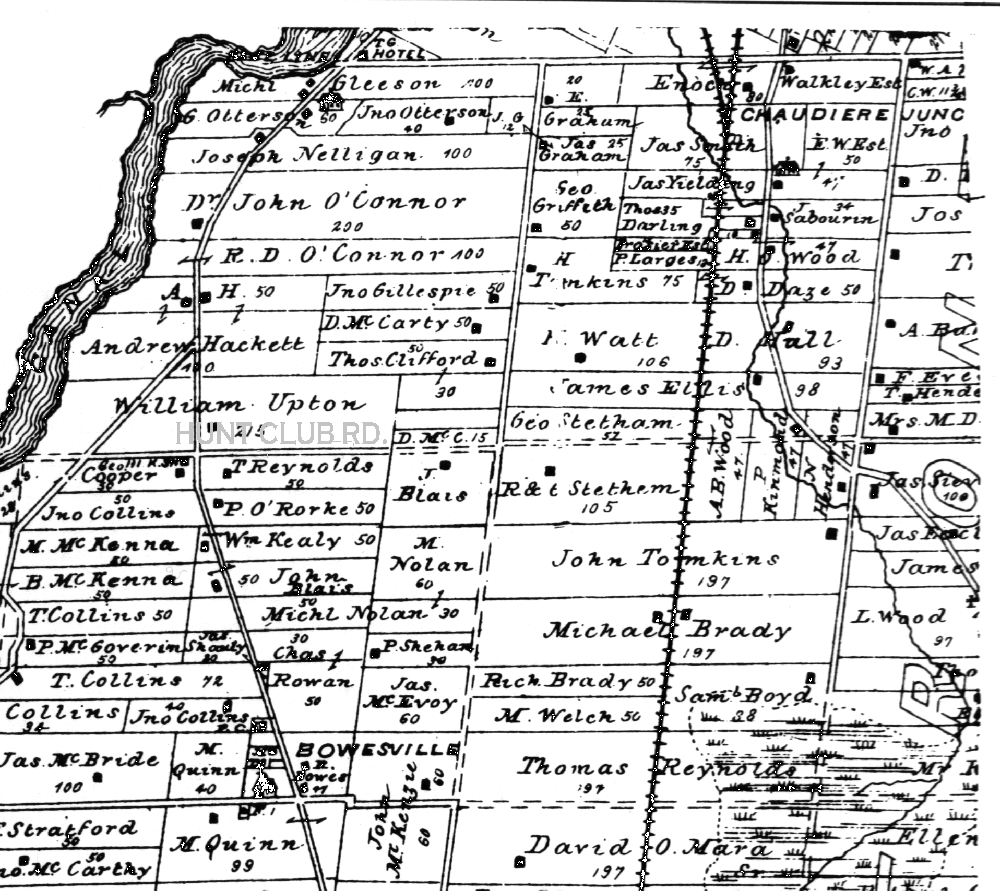 TG
HOTEL
Michl Gleeson 100
G. Otterson
60
Jno Otterson
40
J. G
12
Joseph Nelligan 100
Dr. John O'Connor
200
R. D. O'Connor 100
A. H. 50
Andrew Hackett
100
Jno Gillespie 50
D. McCarty 50
Thos. Clifford
50
William Upton
275
30
D. McC. 15
HUNT CLUB RD.
20
E.
Graham
25
Jas 25
Graham
Geo
Griffeth
50
H
Tomkins 75
Enoch
80
Walkley Est
W. A.
CHAUDIERE JUNC
Jas Smith
75
E. W. Est
50
Jno
Jas Yielding
47
D.
Thos 35
Darling
34
Sabourin
Jos
Frazier Est
P. Larges
H. O. Wood
47
D. Daze 50
Watt
106
D. Hall
93
A. Ba
James Ellis
98
F. Eve
T. Hende
Geo Stetham
52
A.B. Wood
47
P
Kinmond
47
N
Henderson
47
Mrs. M. D.
Geo
Cooper
T Reynolds
50
50
Jno Collins
P. O'Rorke 50
J.
Blais
R & t Stethem
105
Jas Siev
100
M. McKenna
50
Wm Kealy 50
M.
Nolan
60
John Tomkins
197
B. McKenna
50
50 John
Blais
50
James
T. Collins 50
Michl Nolan 30
Michael Brady
197
L. Wood
97
P. McGoverin
50
Jas.
Shouly
20
30
Chas
Rowan
50
P. Shehan
T. Collins 72
Jas.
McEvoy
60
Rich. Brady 50
Saml Boyd
38
Collins
34
40
Jno Collins
M. Welch 50
Jas. McBride
100
M.
Quinn
40
BOWESVILLE
R.
Bowes
47
John
McKenzie
60
60
Thomas Reynolds
197
Stratford
50
M. Quinn
99
David O. Mara
197
Ellen
50
McCarthy